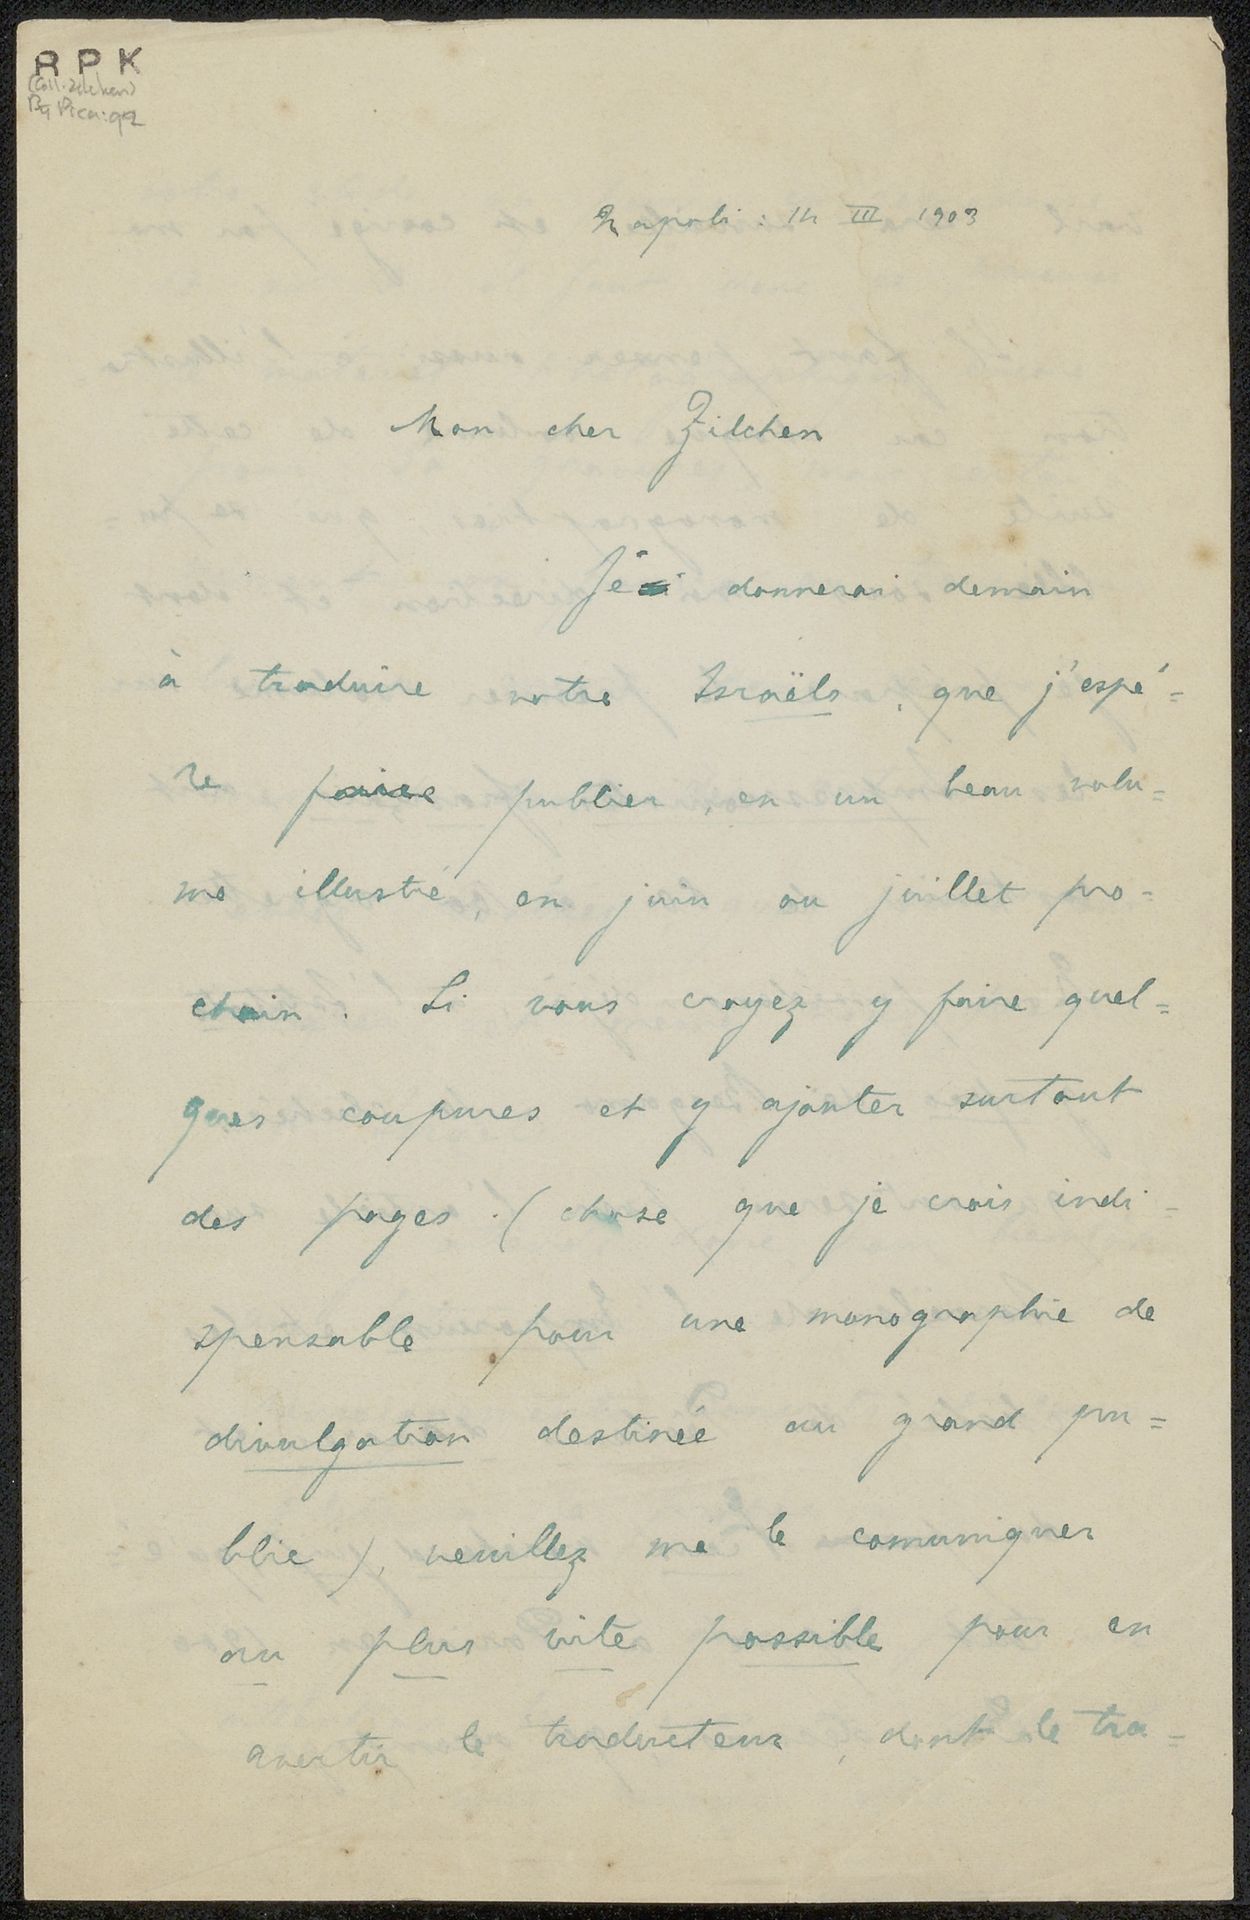 R P K
(Coll. Zilcken)
Bg Pica: 92
Napoli: 14 III 1903
Mon cher Zilchen
Je donnerai demain
à traduire votre Israëls, que j'espé=
re faire publier, en un beau volu=
me illustré, en juin ou juillet pro=
chain. Si vous croyez y faire quel=
ques coupures et y ajouter surtout
des pages (chose que je crois indi=
spensable pour une monographie de
divulgation destinée au grand pu=
blic), veuillez me le comuniquer
au plus vite possible pour en
avertir le traducteur, dont le tra=